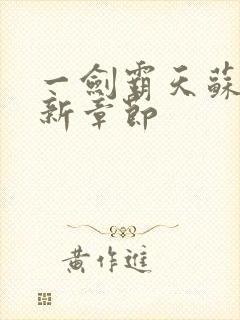 一劍霸天蘇
新章節
黄作進